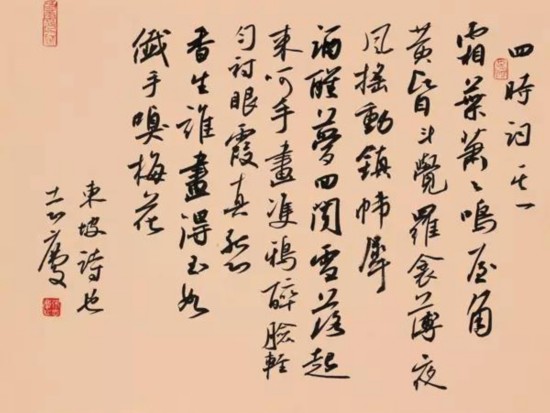 四時詞其一
霜葉蕭〻鳴屋角
黃昏斗覺羅衾薄夜
風搖動鎮幃犀
酒醒夢回聞雪落起
來呵手畫雙鴉醉臉輕
勻衬眼霞真態
香生誰畫得玉如
纖手嗅梅花
東坡詩也